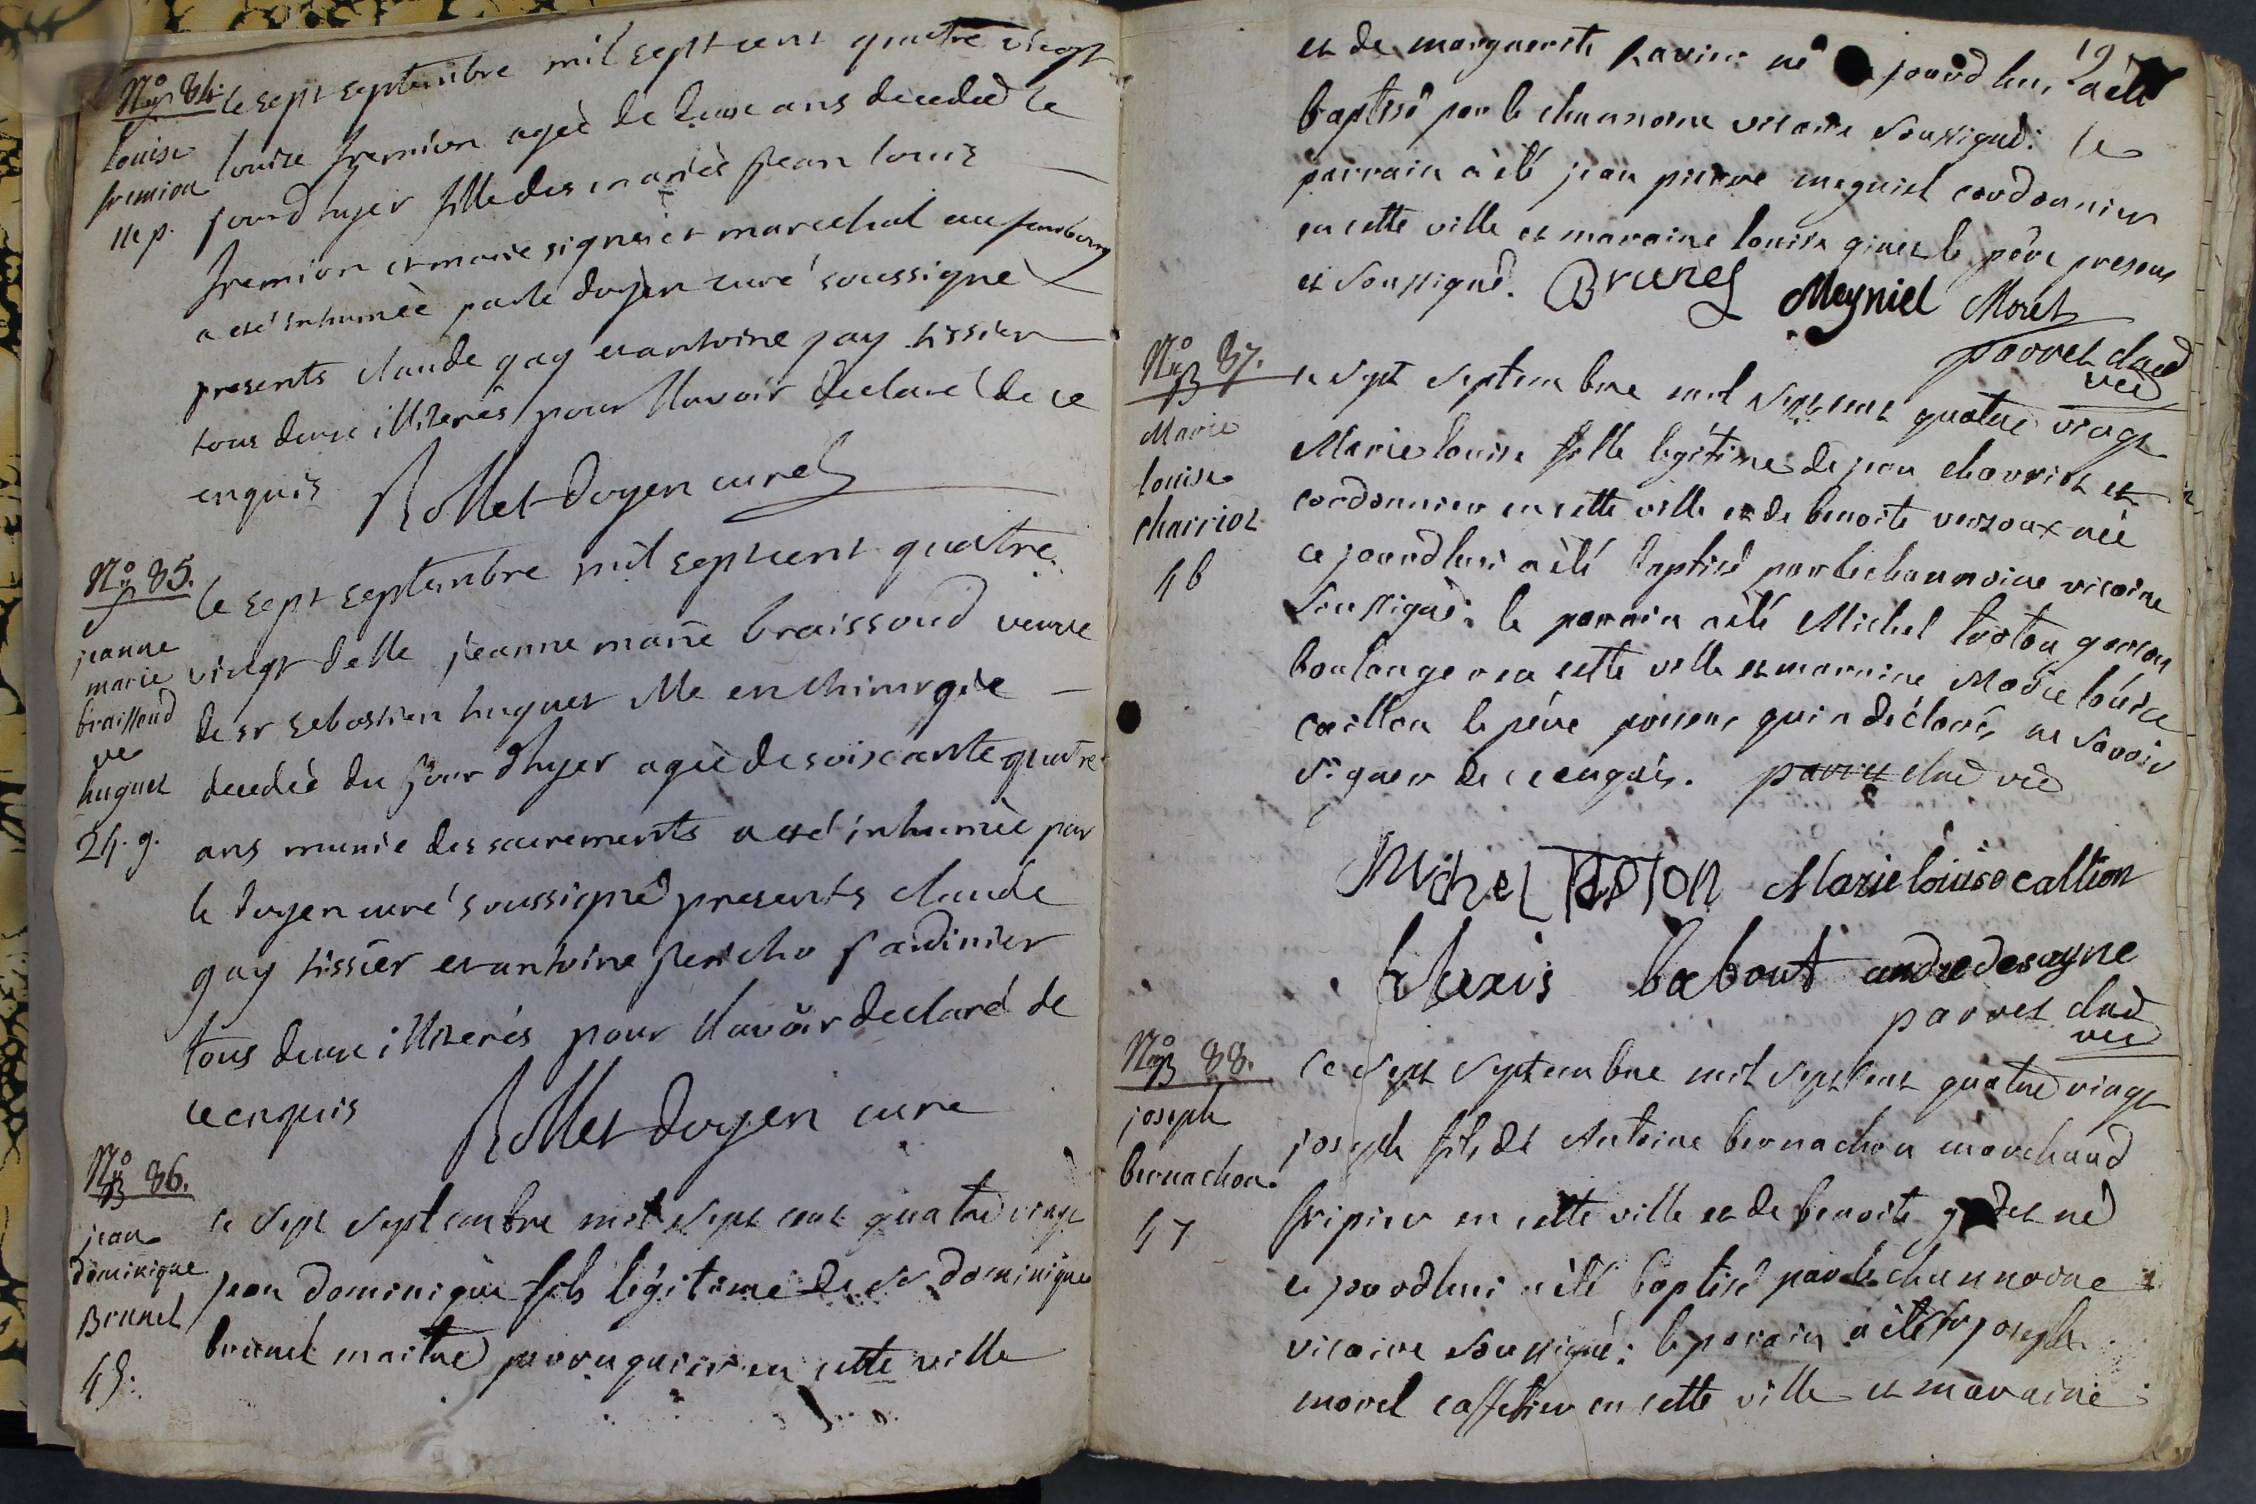 No 84.
louise
fremion
11 p.
le sept septembre mil sept cent quatre vingt
louise fremion agée de deux ans decedée le
jourd hyer fille des mariés jean louis
fremion et marie signeret marechal au faubourg
a eté inhumée par le doyen curé soussigné
presents claude gay et antoine gay tissier
tous deux illiterés pour l'avoir declaré de ce
enquis Rollet doyen curé
No 85.
jeanne
marie
braissoud
ve
huguet
24. g.
le sept septembre mil sept cent quatre
vingt delle jeanne marie braissoud veuve
de sr sebastien huguet Me en chirurgie
decedée du jour d'hyer agée de soixante quatre
ans munie des sacrements a eté inhumée par
le doyen curé soussigné presents claude
gay tissier et antoine jericho jardinier
tous deux illiterés pour l'avoir declaré de
ce enquis Rollet doyen curé
No 86.
B
jean
dominique
Brunel
45.
le sept septembre mil sept cent quatre vingt
jean dominique fils légitime de sr dominique
brunel maitre perruquier en cette ville
19
et de marguerite ravier né jourd'hui a été
baptisé par le chanoine vicaire soussigné: le
parrain a été jean pierre meyniel cordonnier
en cette ville et maraine louise ginet le père present
et soussigné. Brunel Meyniel Moret
parret chne
vic
No 87.
B
Marie
louise
charriot
46
le sept septembre mil sept cent quatre vingt
Marie louise fille légitime de jean charriot et
cordonnier en cette ville et de benoite verzoux née
ce jourd'hui a été baptisé par le chanoine vicaire
soussigné: le parrain a été Michel toston garson
boulanger en cette ville et marraine Marie louise
caillon le père present qui a déclaré ne savoir
signer de ce enquis. parret chne vic
Michel TOSTON Marie louise callion
Alexis babout andre desayne
parret chne
vic
No 88.
B
joseph
bernachon.
47
le sept septembre mil sept cent quatre vingt
joseph fils de Antoine bernachon marchand
fripier en cette ville et de benoite né
ce jourdhui a été baptisé par le chanoine
vicaire soussigné: le parain a été sr joseph
morel caffetier en cette ville et maraine